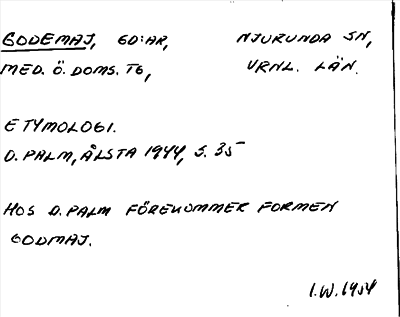 GODEMAJ, GD:AR, NJURUNDA SN,
MED. Ö. DOMS. TG, VRNL. LÄN.
ETYMOLOGI.
D. PALM, ÅLSTA 1944, S. 35
HOS D. PALM FÖREKOMMER FORMEN
GODMAJ.
I.W. 1954